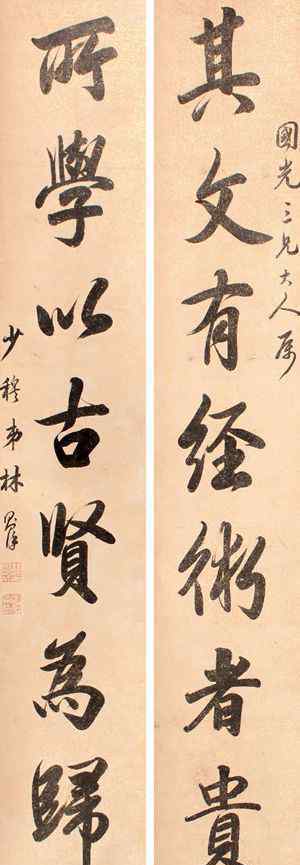 國光三兄大人属
其文有經術者貴
所學以古賢為歸
少穆弟林則徐